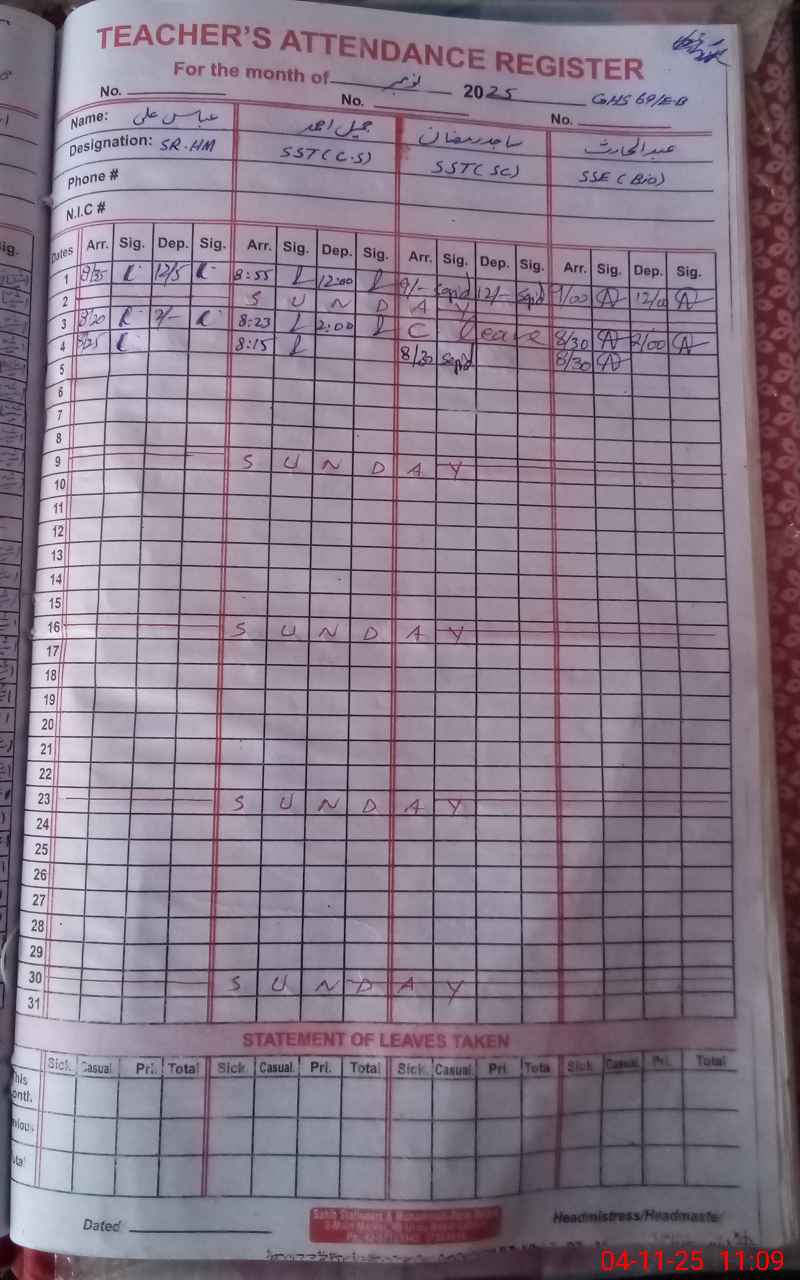 TEACHER'S ATTENDANCE REGISTER
For the month of نومبر 2025 GHS 69/E-B
No. No. No.
Name: عباس علی جمیل احمد ساجد رمضان عبدالحارث
Designation: SR-HM SST (C.S) SST (SC) SSE (Bio)
Phone #
N.I.C #
Dates Arr. Sig. Dep. Sig. Arr. Sig. Dep. Sig. Arr. Sig. Dep. Sig. Arr. Sig. Dep. Sig.
1 12/5 8:55 12:00 9/- Sajid 12/- Sajid 9/00 12/00
2 S U N D A Y
3 8/20 2/- 8:23 2:00 C leave 8/30 2/00
4 8/25 8:15 8/30 Sajid 8/30
5
6
7
8
9 S U N D A Y
10
11
12
13
14
15
16 S U N D A Y
17
18
19
20
21
22
23 S U N D A Y
24
25
26
27
28
29
30 S U N D A Y
31
STATEMENT OF LEAVES TAKEN
Sick. Casual. Pri. Total Sick. Casual. Pri. Total Sick. Casual. Pri. Tota Sick. Casual. Pri. Total
his
onth.
vious
tal
Dated Headmistress/Headmaste
04-11-25 11:09